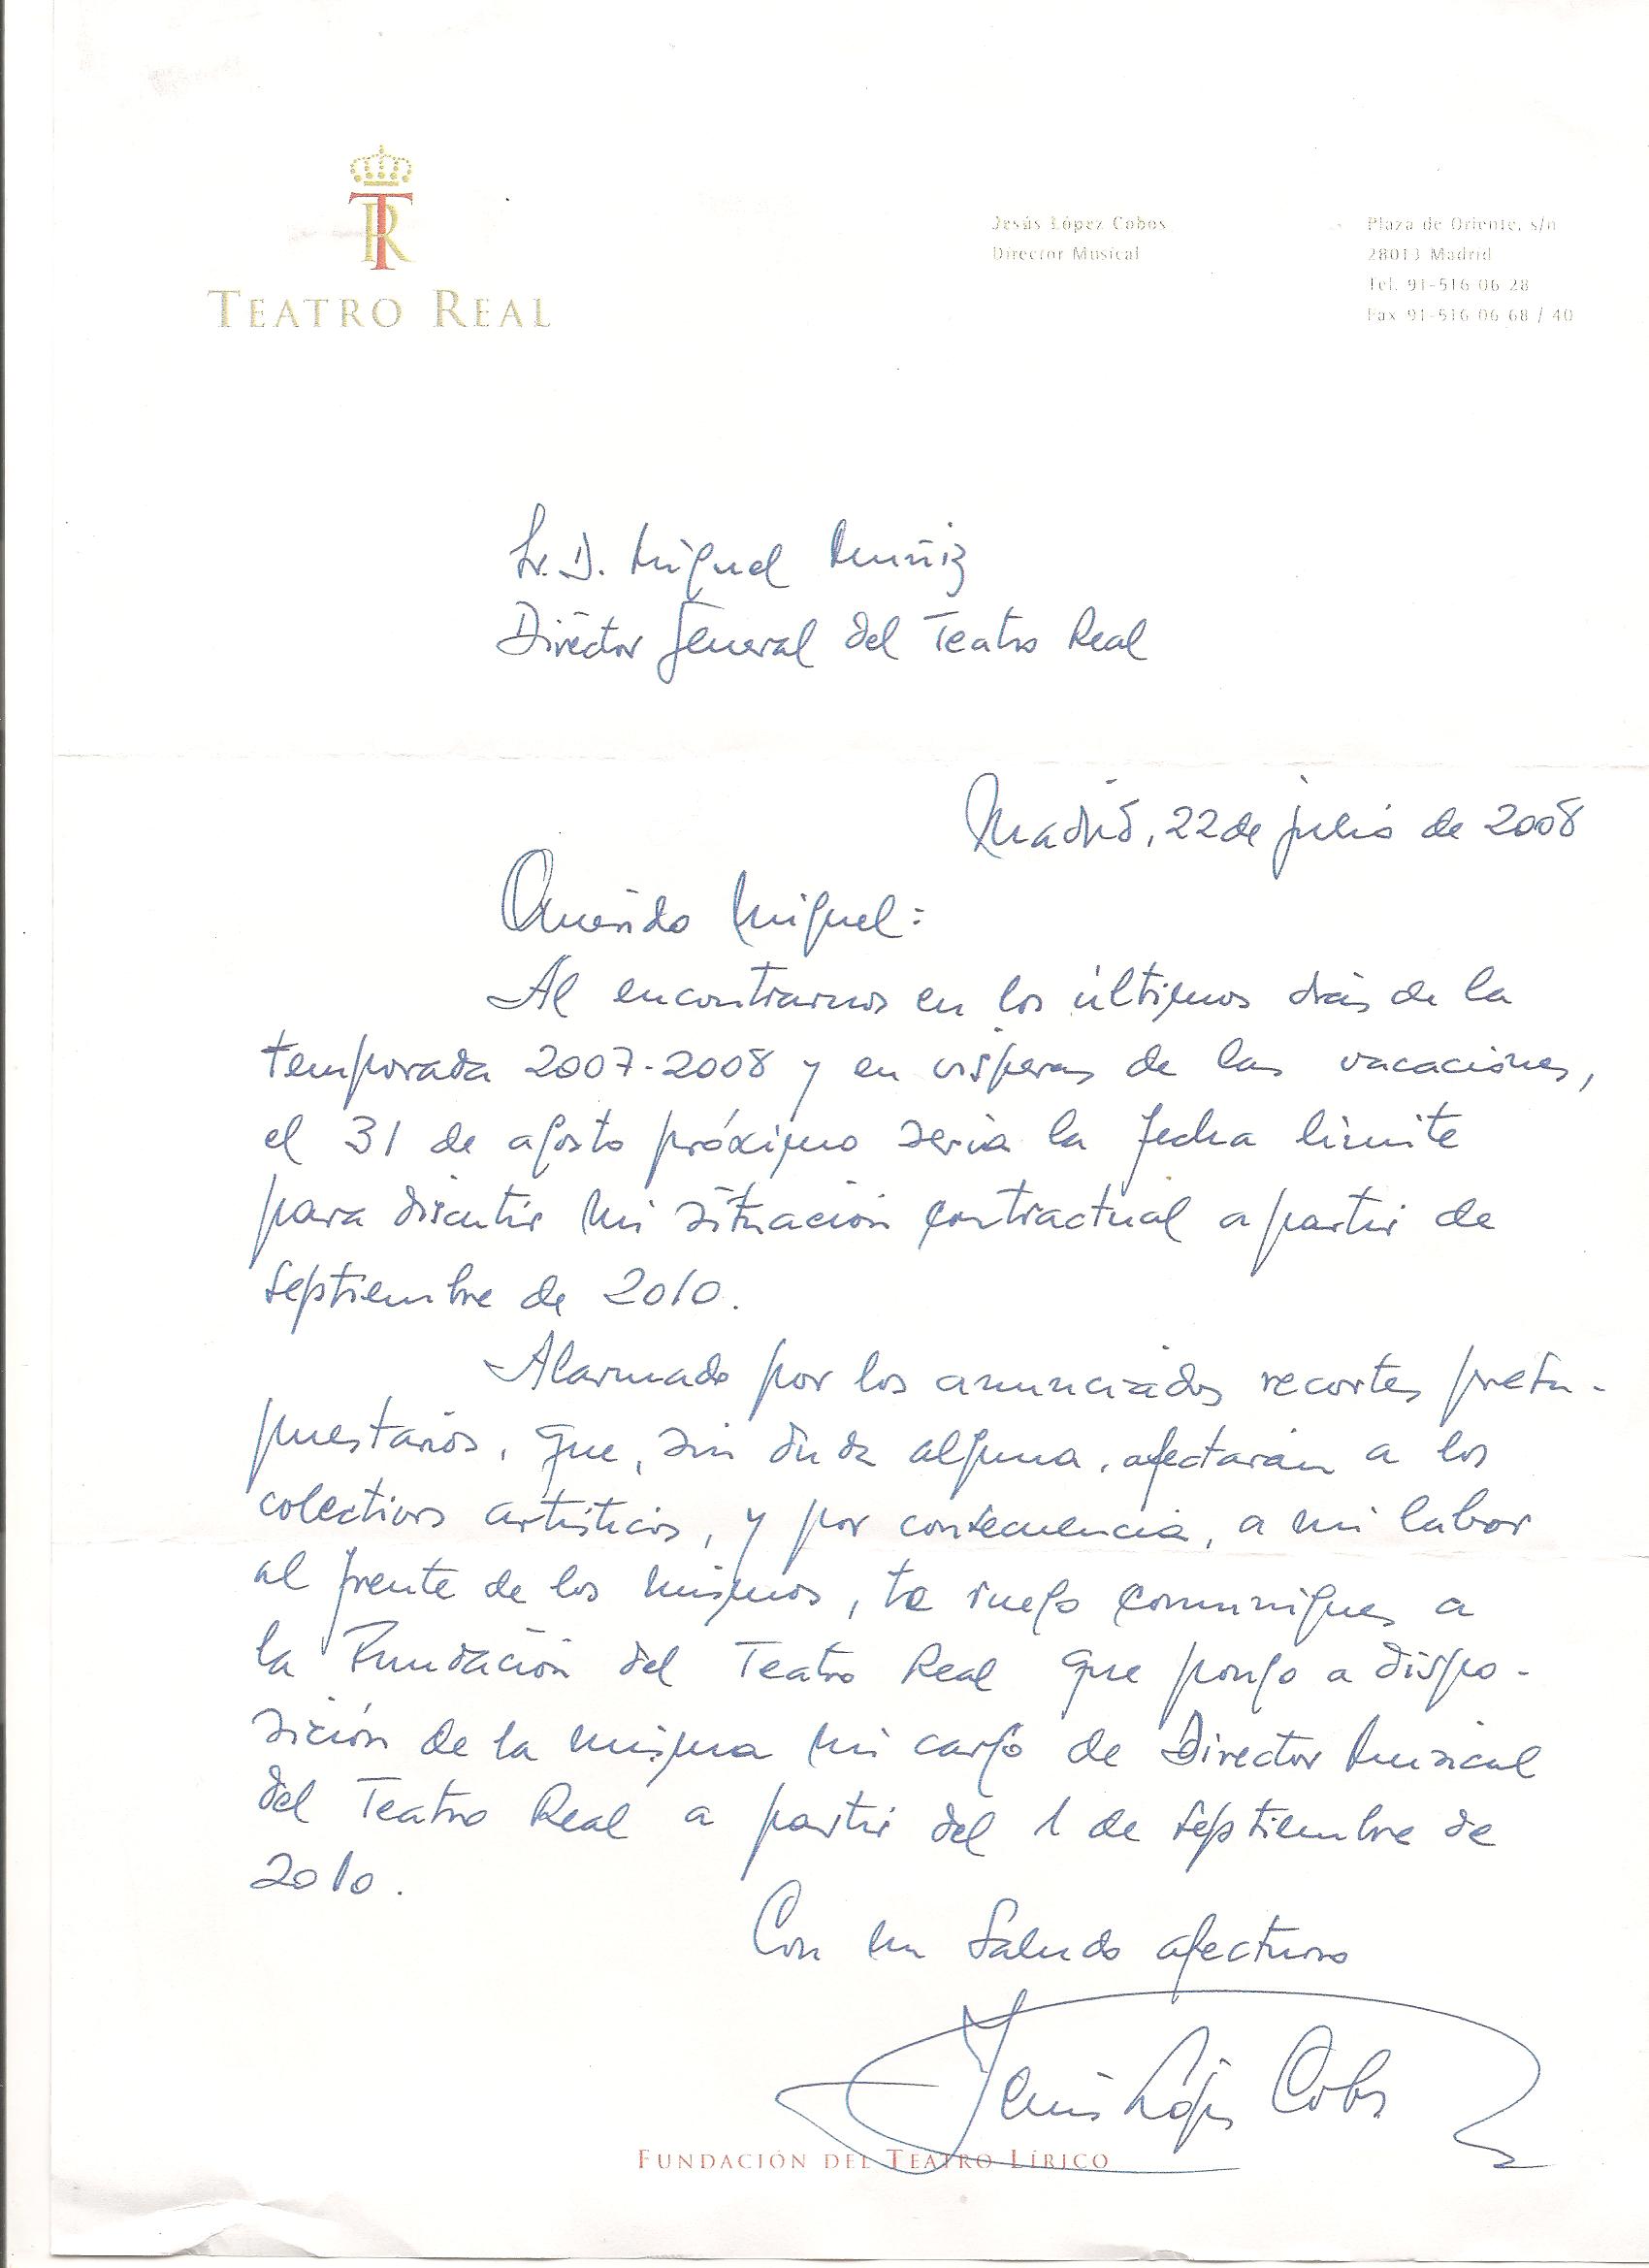 TEATRO REAL
Jesús López Cobos
Director Musical
Plaza de Oriente, s/n
28013 Madrid
Tel. 91-516 06 28
Fax 91-516 06 68 / 40
Sr. D. Miguel Muñiz
Director General del Teatro Real
Madrid, 22 de julio de 2008
Querido Miguel:
Al encontrarnos en los últimos días de la
temporada 2007-2008 y en vísperas de las vacaciones,
el 31 de agosto próximo sería la fecha límite
para discutir mi situación contractual a partir de
Septiembre de 2010.
Alarmado por los anunciados recortes presu-
puestarios, que, sin duda alguna, afectarán a los
colectivos artísticos, y por consecuencia, a mi labor
al frente de los mismos, te ruego comuniques a
la Fundación del Teatro Real que pongo a dispo-
sición de la misma mi cargo de Director Musical
del Teatro Real a partir del 1 de Septiembre de
2010.
Con un Saludo afectuoso
Jesús López Cobos
FUNDACIÓN DEL TEATRO LÍRICO